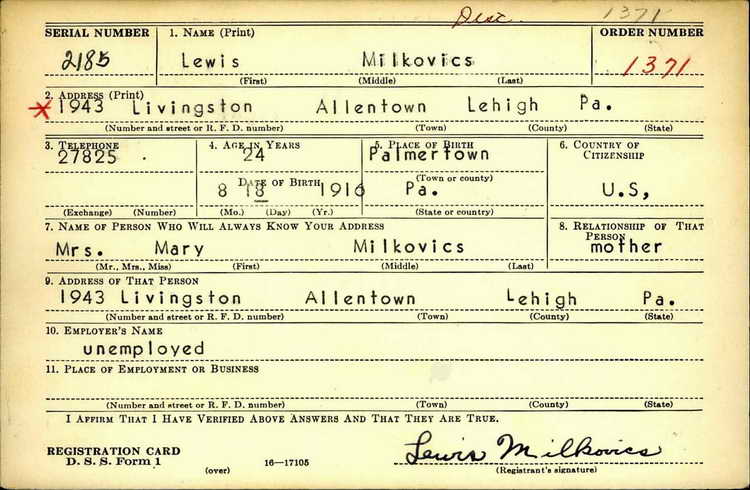 Disc. 1371
SERIAL NUMBER 1. NAME (Print) ORDER NUMBER
2185 Lewis Milkovics 1371
(First) (Middle) (Last)
2. ADDRESS (Print)
1943 Livingston Allentown Lehigh Pa.
(Number and street or R. F. D. number) (Town) (County) (State)
3. TELEPHONE 4. AGE IN YEARS 5. PLACE OF BIRTH 6. COUNTRY OF CITIZENSHIP
27825 24 Palmertown
DATE OF BIRTH (Town or county)
8 18 1916 Pa. U.S,
(Exchange) (Number) (Mo.) (Day) (Yr.) (State or country)
7. NAME OF PERSON WHO WILL ALWAYS KNOW YOUR ADDRESS 8. RELATIONSHIP OF THAT PERSON
Mrs. Mary Milkovics mother
(Mr., Mrs., Miss) (First) (Middle) (Last)
9. ADDRESS OF THAT PERSON
1943 Livingston Allentown Lehigh Pa.
(Number and street or R. F. D. number) (Town) (County) (State)
10. EMPLOYER'S NAME
unemployed
11. PLACE OF EMPLOYMENT OR BUSINESS
(Number and street or R. F. D. number) (Town) (County) (State)
I AFFIRM THAT I HAVE VERIFIED ABOVE ANSWERS AND THAT THEY ARE TRUE.
REGISTRATION CARD Lewis Milkovics
D. S. S. Form 1 (over) 16—17105 (Registrant's signature)